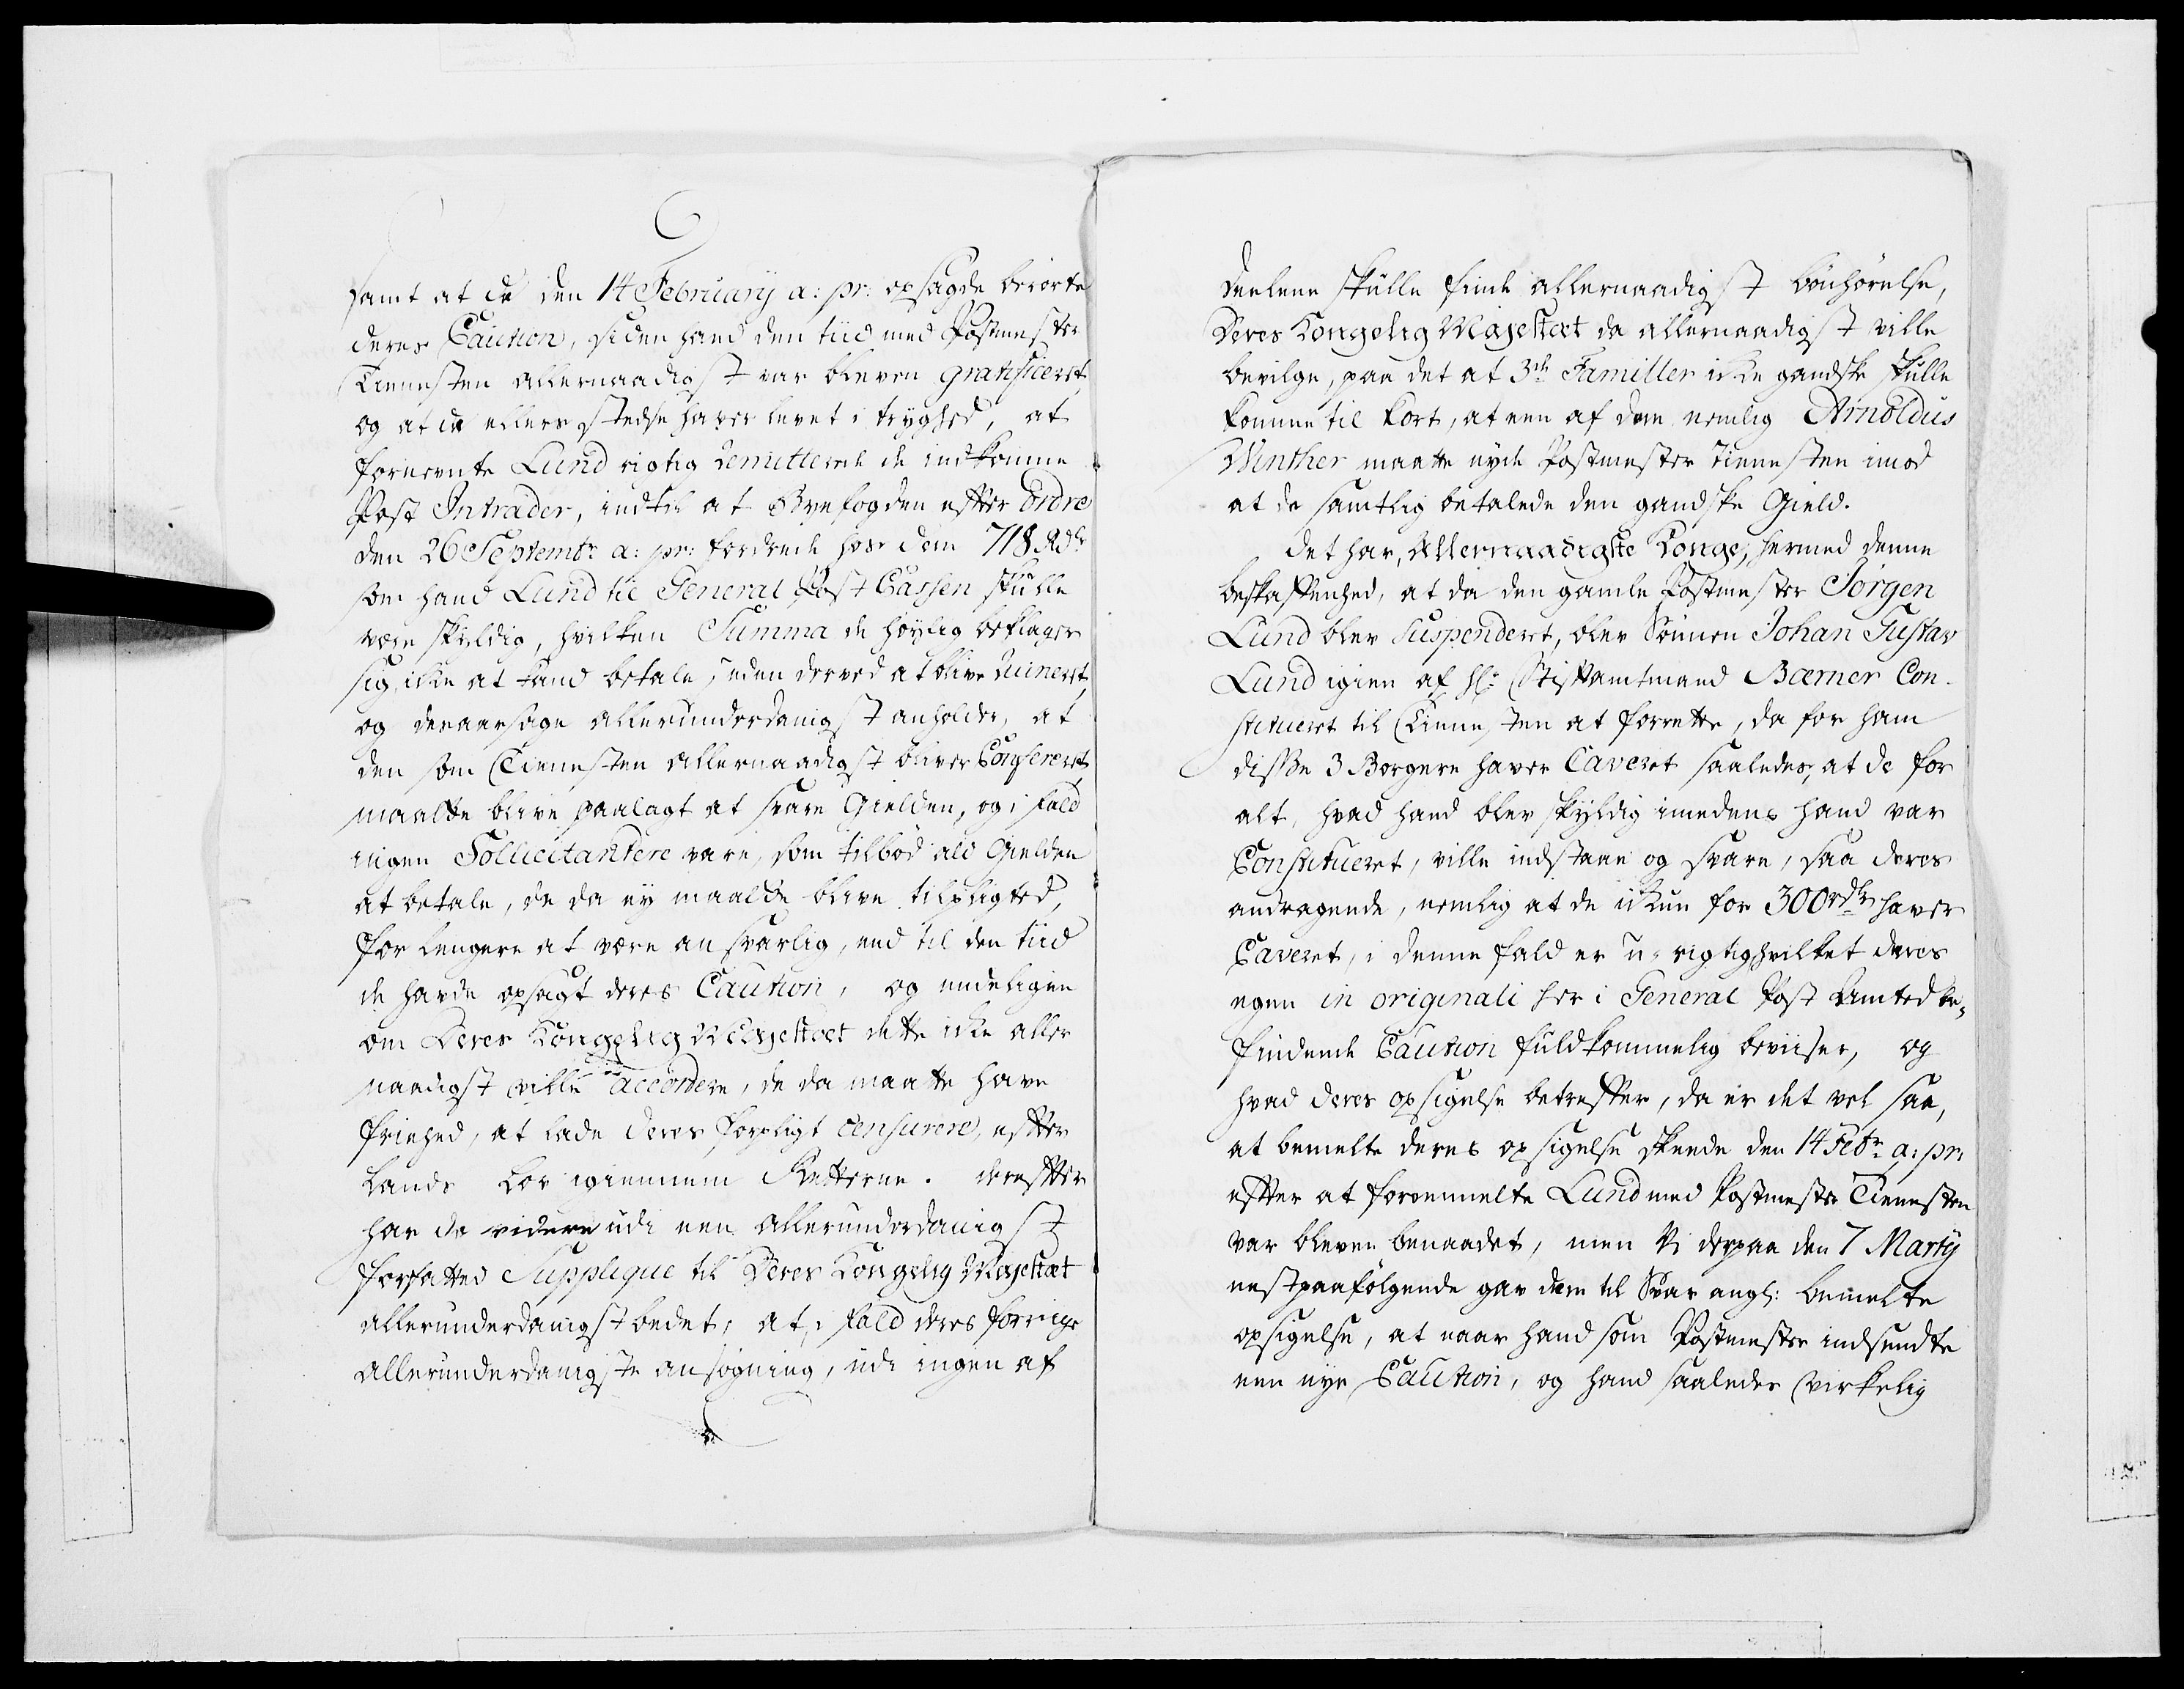 samt at de den 14 February a: pr: opsagde berørte
deres Caution, siden hand den tiid med Postmester
Tienesten allernaadigst var bleven gratificeret,
og at de ellers stedse haver levet i tryghed, at
fornevnte Lund rigtig remitterede de indkomne
Post Intrader, indtil at Byefogden efter Ordre
den 26 Septembr a: pr: fordrede hos dem 718 Rdlr
som hand Lund til General Post Cassen skulle
være skyldig, hvilken Summa de høylig beklager
sig, icke at kand betale, uden derved at blive Ruineret,
og deraarsage allerunderdanigst anholder, at
den som Tienesten allernaadigst bliver Confereret,
maatte blive paalagt at svare Gielden, og i fald
ingen Sollicitantere vare, som tilbød ald Gielden
at betale, de da ey maatte blive tilpligted,
for lengere at være ansvarlig, end til den tiid
de havde opsagt deres Caution, og endeligen
om Deres Kongelig Mayestæt dette icke aller
naadigst ville accordere, de da maatte have
friehed, at lade deres forpligt censurere, efter
Lands Lov igiennem Retterne. derefter
har de videre udi een allerunderdanigst
forfatted Supplique til Deres Kongelig Mayestæt
allerunderdanigst bedet, at, i fald deres forrige
allerunderdanigste ansøgning, udi ingen af
deelene skulle finde allernaadigst bønhørelse,
Deres Kongelig Majestæt da allernaadigst ville
bevilge, paa det at 3de Familler icke gandske skulle
komme til kort, at een af dem nemlig Arnoldus
Winther maatte nyde Postmester Tienesten imod
at de samtlig betalede den gandske Gield.
Det har, Allernaadigste Konge, hermed denne
beskaffenhed, at da den gamle Postmester Jørgen
Lund blev Suspenderet, blev Sønnen Johan Gustav
Lund igien af Hr: Stiftamtmand Bærner Con-
stitueret til Tienesten at forrette, da for ham
disse 3 Borgere haver Caveret saaledes, at de for
alt, hvad hand blev skyldig imedens hand var
Constitueret, ville indstaae og svare, saa deres
andragende, nemlig at de ickun for 300 rdlr haver
Caveret, i denne fald er u-rigtig, hvilket deres
egen in originali her i General Post Amted be-
findende Caution fuldkommelig beviiser, og
hvad deres opsigelse betreffer, da er det vel saa,
at bemelte deres opsigelse skeede den 14 Febr a: pr:
efter at forommelte Lund med Postmester Tienesten
var bleven benaadet, men Vi derpaa den 7 Marty
nestpaafølgende gav dem til Svar angl: bemelte
opsigelse, at naar hand som Postmester indsendte
een nye Caution, og hand saaledes virkelig